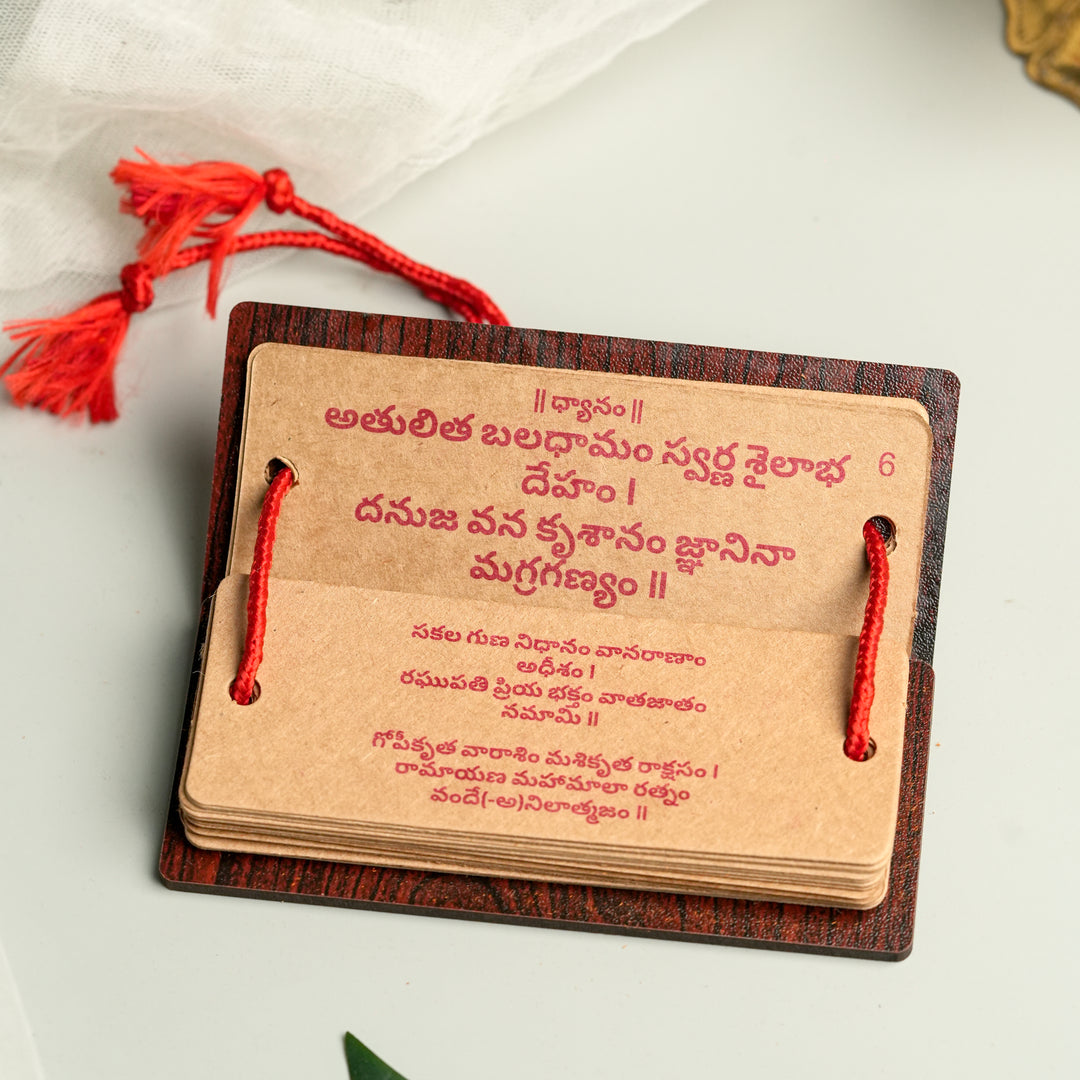 || ధ్యానం ||
అతులిత బలధామం స్వర్ణ శైలాభ
6
దేహం |
దనుజ వన కృశానం జ్ఞానినా
మగ్రగణ్యం ||
సకల గుణ నిధానం వానరాణాం
అధీశం |
రఘుపతి ప్రియ భక్తం వాతజాతం
నమామి ||
గోపీకృత వారాశిం మశికృత రాక్షసం |
రామాయణ మహామాలా రత్నం
వందే(-అ)నిలాత్మజం ||